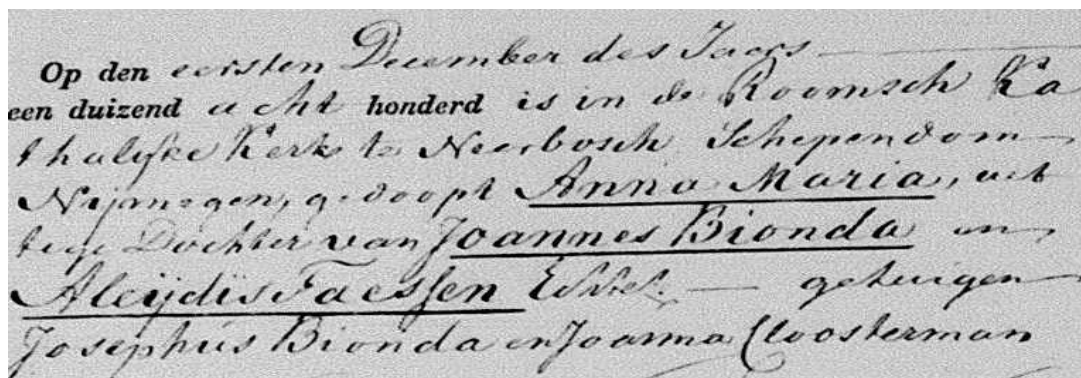 Op den eersten December des Jaars
een duizend acht honderd is in de Roomsch Ka
tholijke Kerk te Neerbosch Schependom
Nijmegen, gedoopt Anna Maria, wet
tige Dochter van Joannes Bionda en
Aleijdis Faessen Echtel. getuigen
Josephus Bionda en Joanna Cloosterman